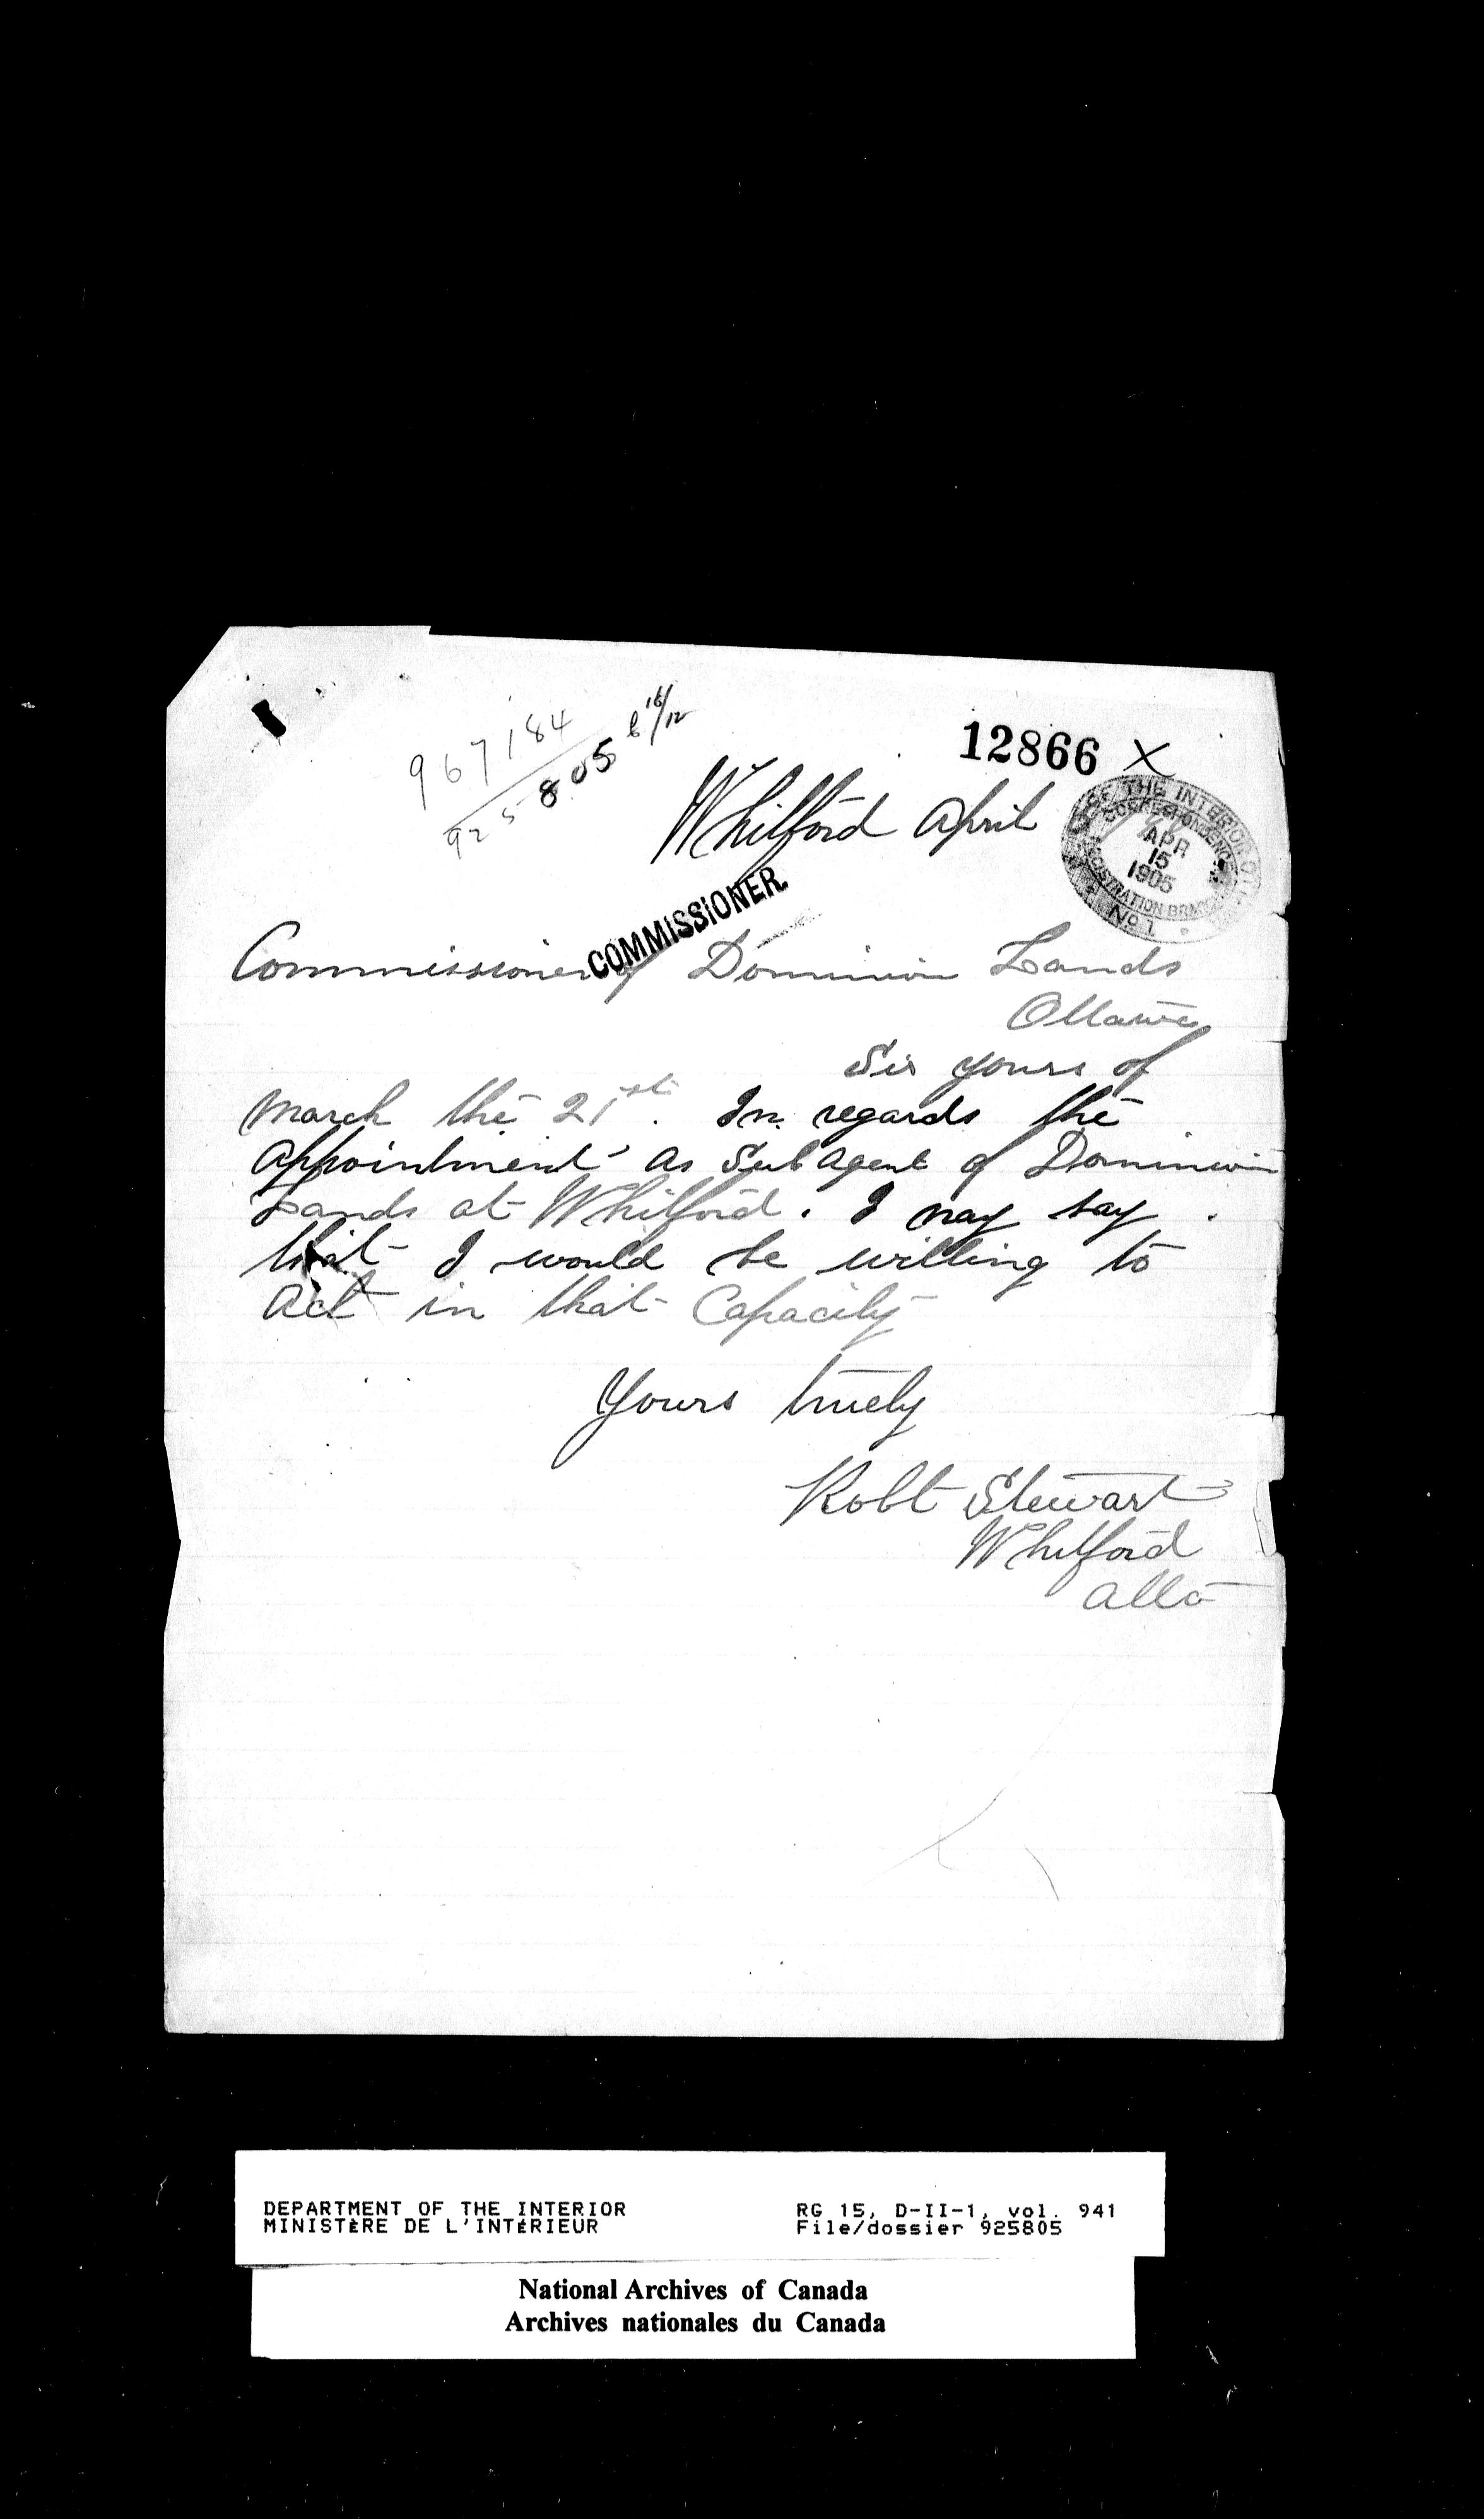 967184
925805
12866 X
Whitford April
OF THE INTERIOR
CORRESPONDENCE
APR
15
1905
REGISTRATION BRANCH
COMMISSIONER.
Commissioner of Dominion Lands
Ottawa
Sir yours of
March the 21st. In regards the
appointment as Sub agent of Dominion
Lands at Whitford. I may say
that I would be willing to
act in that Capacity
Yours truely
Robt Stewart
Whitford
Alta
DEPARTMENT OF THE INTERIOR
MINISTÈRE DE L'INTÉRIEUR
RG 15, D-II-1, vol. 941
File/dossier 925805
National Archives of Canada
Archives nationales du Canada